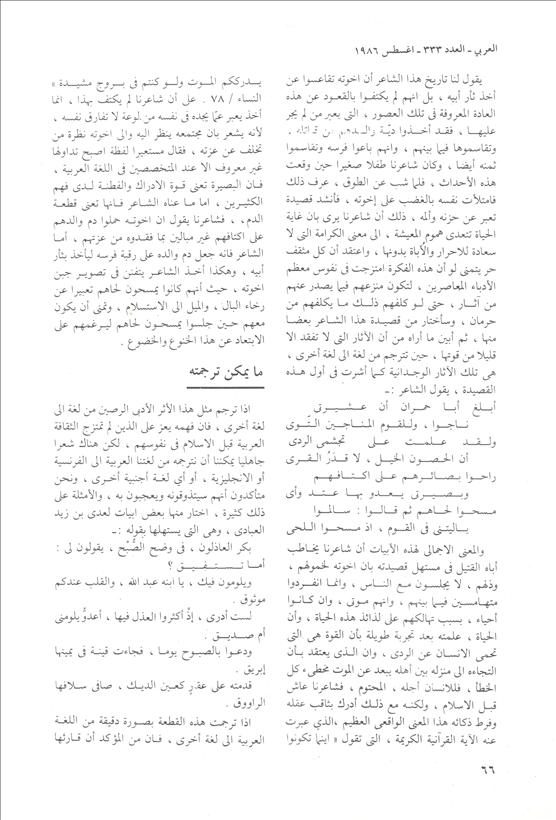 العربي - العدد ٣٣٣ - اغسطس ١٩٨٦
يقول لنا تاريخ هذا الشاعر أن اخوته تقاعسوا عن
أخذ ثأر أبيه ، بل انهم لم يكتفوا بالقعود عن هذه
العادة المعروفة في تلك العصور ، التى يعير من لم يجر
عليها ، فقد أخذوا ديّة والدهم من
وتقاسموها فيما بينهم ، وانهم باعوا فرسه وتقاسموا
ثمنه أيضا ، وكان شاعرنا طفلا صغيرا حين وقعت
هذه الأحداث ، فلما شب عن الطوق ، عرف ذلك
فامتلأت نفسه بالغضب على إخوته ، فأنشد قصيدة
تعبر عن حزنه وألمه ، ذلك أن شاعرنا يرى بان غاية
الحياة تتعدى هموم المعيشة ، الى معنى الكرامة التى لا
سعادة للاحرار والأباة بدونها ، واعتقد أن كل مثقف
حر يتمنى لو أن هذه الفكرة امتزجت في نفوس معظم
الأدباء المعاصرين ، لتكون منزعهم فيما يصدر عنهم
من آثار ، حتى لو كلفهم ذلك ما يكلفهم من
حرمان ، وسأختار من قصيدة هذا الشاعر بعضا
منها ، ثم أبين ما أراه من أن الآثار التى لا تفقد الا
قليلا من قوتها ، حين تترجم من لغة الى لغة أخرى ،
هى تلك الآثار الوجدانية كما أشرت في أول هذه
القصيدة ، يقول الشاعر :ـ
أبلغ أبا حمران أن عشيرتى
ناجوا ، وللقوم المناجين التَّوى
ولقد علمت على تجشمى الردى
أن الحصون الخيل ، لا قدَرُ القرى
راحوا بصائرهم على اكتافهم
وبصيرتى يعدو بها عتد وأى
مسحوا لحاهم ثم قالوا : سالموا
ياليتنى في القوم ، اذ مسحوا اللحى
والمعنى الاجمالى لهذه الأبيات أن شاعرنا يخاطب
أباه القتيل في مستهل قصيدته بان اخوته لخمولهم ،
وذلهم ، لا يجلسون مع الناس ، وانما انفردوا
متهامسين فيما بينهم ، وانهم موتى ، وان كانوا
أحياء ، بسبب تهالكهم على لذائذ هذه الحياة ، وأن
الحياة ، علمته بعد تجربة طويلة بأن القوة هى التى
تحمى الانسان عن الردى ، وان الذى يعتقد بأن
التجاءه الى منزله بين أهله يبعد عن الموت مخطىء كل
الخطأ ، فللانسان أجله ، المحتوم ، فشاعرنا عاش
قبل الاسلام ، ولكنه مع ذلك أدرك بثاقب عقله
وفرط ذكائه هذا المعنى الواقعى العظيم ،الذي عبرت
عنه الآية القرآنية الكريمة ، التى تقول « اينما تكونوا
يدرككم الموت ولو كنتم فى بروج مشيدة »
النساء / ٧٨ . على أن شاعرنا لم يكتف بهذا ، انما
أخذ يعبر عمّا يجده فى نفسه من لوعة لا تفارق نفسه ،
لأنه يشعر بان مجتمعه ينظر اليه والى اخوته نظرة من
تخلف عن عزته ، فقال مستعيرا لفظة اصبح تداولها
غير معروف الا عند المتخصصين فى اللغة العربية ،
فان البصيرة تعنى قوة الادراك والفطنة لدى فهم
الكثيرين ، اما ما عناه الشاعر فانها تعنى قطعة
الدم ، فشاعرنا يقول ان اخوته حملوا دم والدهم
على اكتافهم غير مبالين بما فقدوه من عزتهم ، أما
الشاعر فانه جعل دم والده على رقبة فرسه ليأخذ بثأر
أبيه ، وهكذا أخذ الشاعر يتفنن فى تصوير جبن
اخوته ، حيث أنهم كانوا يمسحون لحاهم تعبيرا عن
رخاء البال ، والميل الى الاستسلام ، وتمنى أن يكون
معهم حين جلسوا يمسحون لحاهم ليرغمهم على
الابتعاد عن هذا الخنوع والخضوع .
ما يمكن ترجمته
اذا ترجم مثل هذا الأثر الأدبى الرصين من لغة الى
لغة أخرى ، فان فهمه يعز على الذين لم تمتزج الثقافة
العربية قبل الاسلام فى نفوسهم ، لكن هناك شعرا
جاهليا يمكننا أن نترجمه من لغتنا العربية الى الفرنسية
أو الانجليزية ، أو أي لغة أجنبية أخرى ، ونحن
متأكدون أنهم سيتذوقونه ويعجبون به ، والأمثلة على
ذلك كثيرة ، اختار منها بعض ابيات لعدى بن زيد
العبادى ، وهى التى يستهلها بقوله :ـ
بكر العاذلون ، فى وضح الصُّبْح ، يقولون لى :
أما تستفيق ؟
ويلومون فيك ، يا ابنه عبد الله ، والقلب عندكم
موثوق .
لست أدرى ، إذْ أكثروا العذل فيها ، أعدوٌ يلومنى
أم صديق .
ودعوا بالصبوح يوما ، فجاءت قينة فى يمينها
إبريق .
قدمته على عقارٍ كعين الديك ، صافى سلافها
الراووق .
اذا ترجمت هذه القطعة بصورة دقيقة من اللغة
العربية الى لغة أخرى ، فان من المؤكد أن قارئها
٦٦